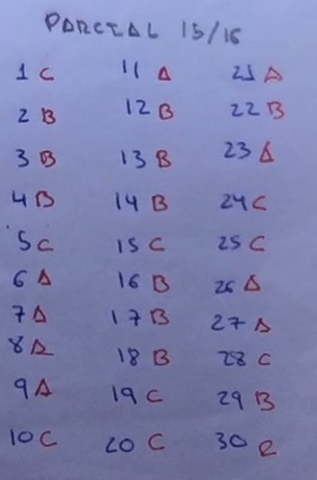 PARCIAL 15/16
1 C 11 A 21 A
2 B 12 B 22 B
3 B 13 B 23 A
4 B 14 B 24 C
5 C 15 C 25 C
6 A 16 B 26 A
7 A 17 B 27 A
8 A 18 B 28 C
9 A 19 C 29 B
10 C 20 C 30